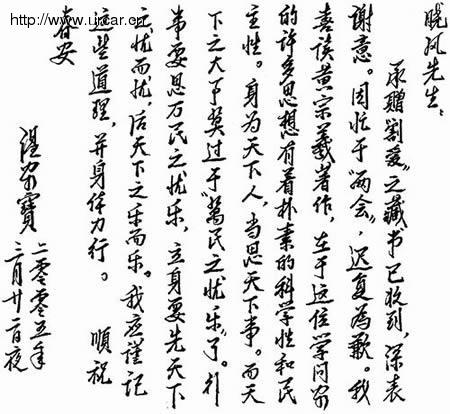 http://www.urcar.cn
晓风先生:
承赠"割爱"之藏书已收到,深表
谢意。因忙于"两会",迟复为歉。我
喜读黄宗羲著作,在于这位学问家
的许多思想有着朴素的科学性和民
主性。身为天下人,当思天下事。而天
下之大事莫过于"萬民之忧乐"了。行
事要思万民之忧乐,立身要先天下
之忧而忧,后天下之乐而乐。我应谨记
这些道理,并身体力行。 順祝
春安
温家寶
二零零五年
三月廿一日夜